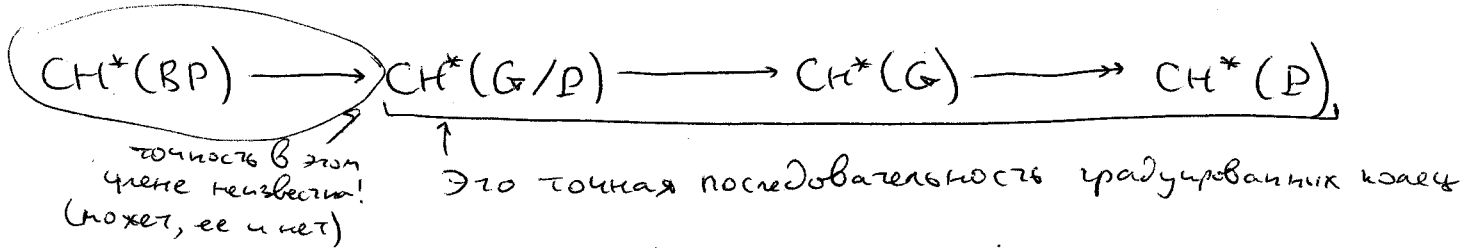 CH*(BP) ⟶ CH*(G/P) ⟶ CH*(G) ↠ CH*(P),
точность в этом
члене неизвестна!
(может, ее и нет)
Это точная последовательность градуированных колец